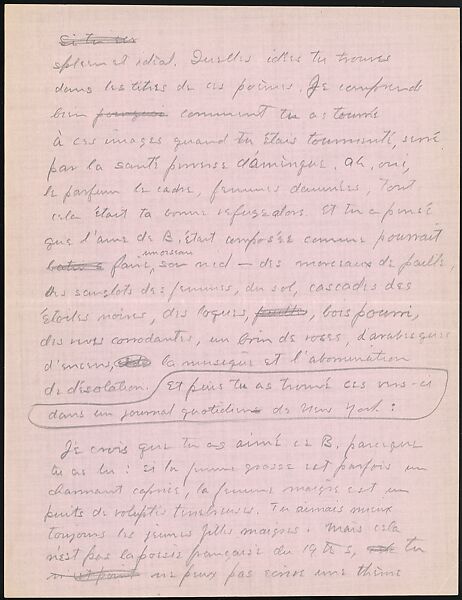 Si tu es
spleen et idéal. Quelles idées tu trouves
dans les titres de ces poèmes. Je comprends
bien pourquoi comment tu as tourné
à ces images quand tu étais tourmenté, serré
par la santé
Ah, oui,
le parfum le cadre, femmes damnées, Tout
cela était ta bonne alors. Et tu as pensé
que l'âme de B. était composée comme pourrait
faire, un oiseau son nid — des morceaux de paille,
des sanglots des femmes, du sol, cascades des
étoiles noires, des loques, paille, bois pourri,
des rives corrodantes, un brin de roses, d'arabesques
d'encens, la musique et l'abomination
de désolation. Et puis tu as trouvé ces vers-ci
dans un journal quotidien de New York :
Je crois que tu as aimé ce B. parce que
tu as lu : si la femme grasse est parfois un
charmant caprice, la femme maigre est un
puits de voluptés ténébreuses. Tu aimais mieux
toujours les jeunes filles maigres. Mais cela
n'est pas la poésie française du 19 s, tu
ne peux pas écrire une thème